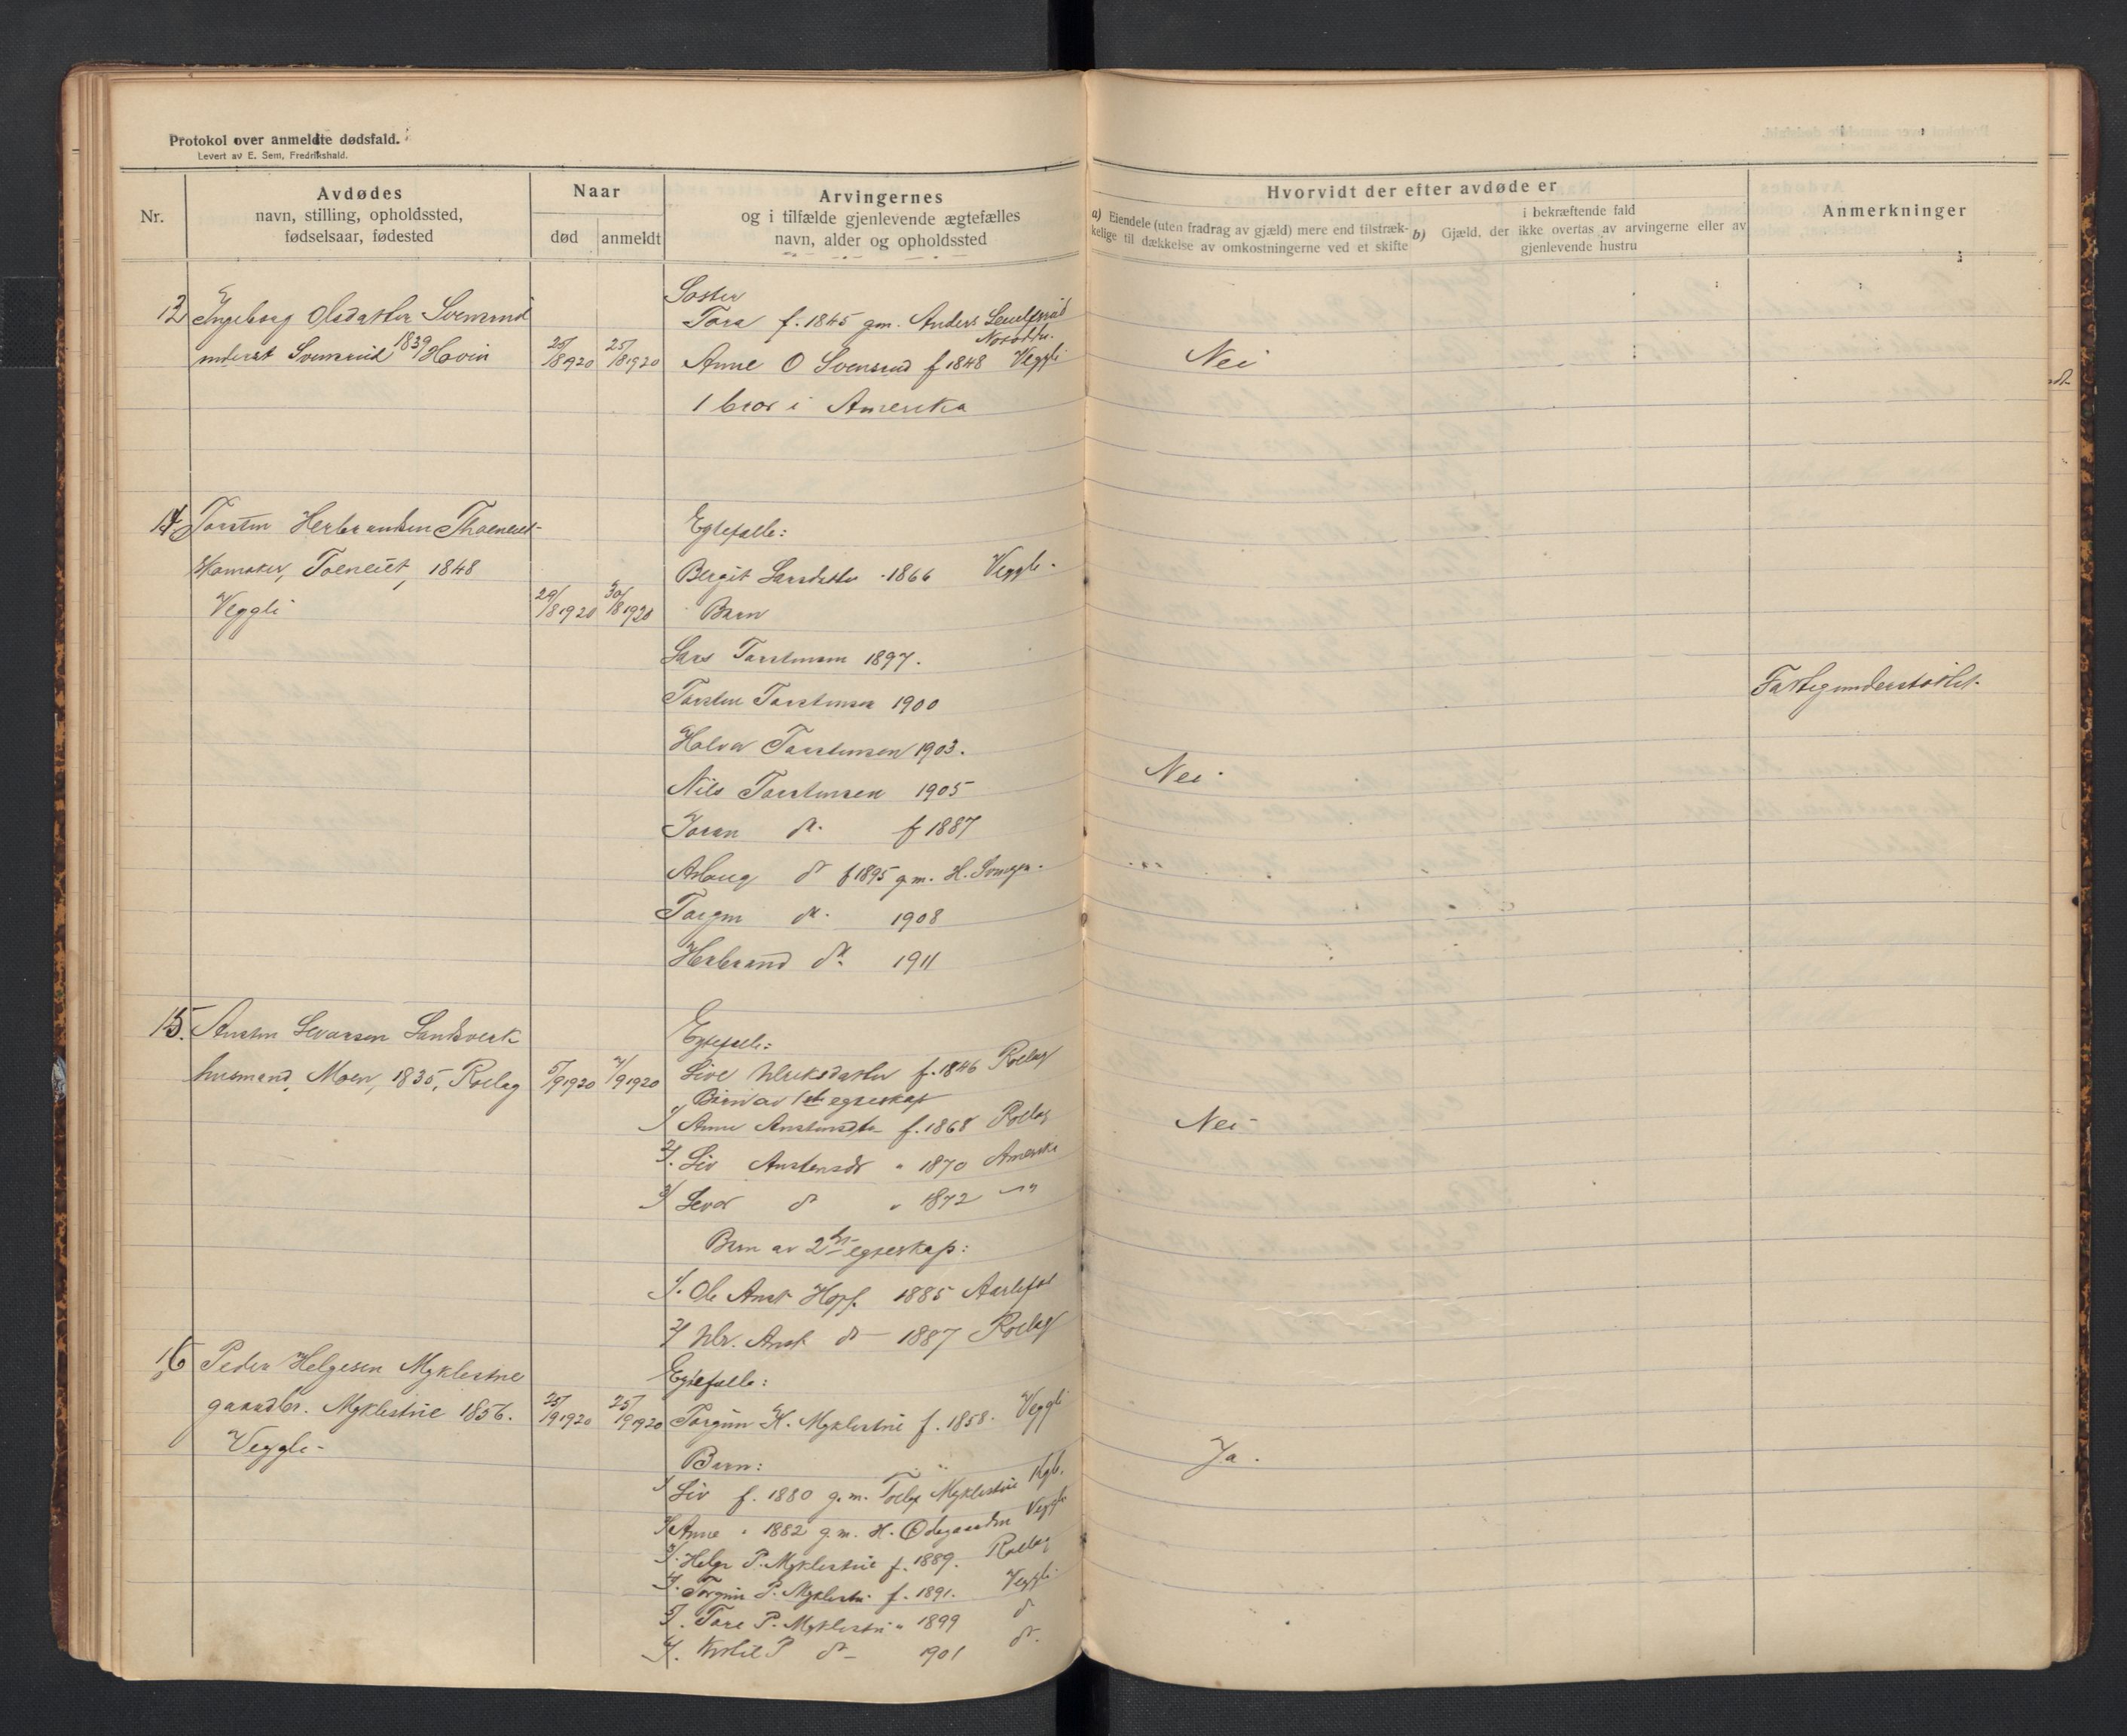 Protokol over anmeldte dødsfald.
Levert av E. Sem, Fredrikshald.
Nr.
Avdødes
navn, stilling, opholdssted,
fødselsaar, fødested
Naar
død
anmeldt
Arvingernes
og i tilfælde gjenlevende ægtefælles
navn, alder og opholdssted
Hvorvidt der efter avdøde er
a) Eiendele (uten fradrag av gjæld) mere end tilstræk-
kelige til dækkelse av omkostningerne ved et skifte
i bekræftende fald
b) Gjæld, der ikke overtas av arvingerne eller av
gjenlevende hustru
Anmerkninger
Søster
Ingeborg Olsdatter Svensrud
Tora f. 1845 gm. Anders
Svensrud 1839 Hovin
25/8 1920 25/8 1920
Anne O Svensrud f 1848 Veggli
Nei
1 bror i Amerika
14 Torsten Herbrandsen
Egtefælle:
1848
Bergit Larsdatter 1866 Veggli
Veggli
29/8 1920 30/8 1920
Barn
Lars Torstensen 1897.
Torsten Torstensen 1900
Fattigunderstøttet.
Halvor Torstensen 1903.
Nils Torstensen 1905
Nei
Joran do. f 1887
Aslaug do f 1895 g.m. H.
Torgun do. 1908
Herbrand do. 1911
15. Austen Levorsen Landsverk
Egtefælle:
husmand, Moen, 1835, Rollag
5/9 1920 7/9 1920
Live Ulriksdatter f. 1846 Rollag
Barn av 1ste egteskap
1/ Anne Austensdtr f. 1868 Rollag
Nei
2/. Liv Austensdr " 1870 Amerika
3/ Levor do " 1872 "
Barn av 2det egteskap:
1/. Ole Aust. 1885
2/ Ulr. Aust do 1887 Rollag
16 Peder Helgesen Myklestue
Egtefælle:
gaardbr. Myklestue 1856.
25/9 1920 25/9 1920
Torgun K. Myklestue f. 1858. Veggli
Veggli
Barn:
Ja.
1/ Liv f. 1880 g.m. Myklestue Kgb.
2/ Anne " 1882 g.m. H. Ødegaarden Veggli
3/. Helge P. Myklestue f. 1889. Rollag
4/. Torgun P. Myklestu f. 1891. Veggli
5/. Tore P. Myklestu " 1899 do
6/. P do 1901 do.